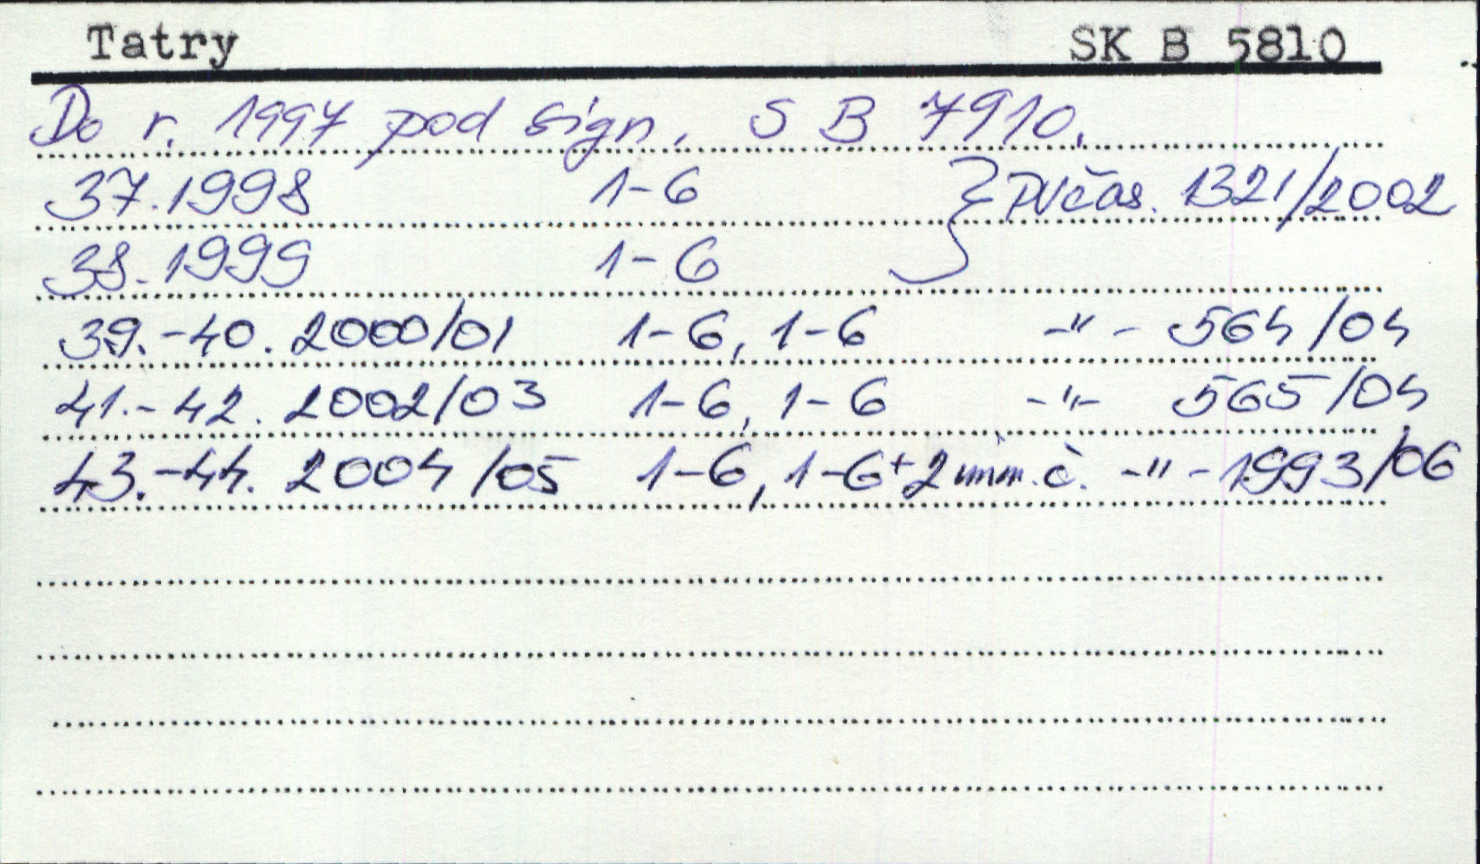 Tatry SK B 5810
Do r. 1997 pod sign. S B 7910.
37.1998 1-6 } PVčas. 1321/2002
38.1999 1-6
39.-40. 2000/01 1-6, 1-6 -"- 564/04
41.-42. 2002/03 1-6, 1-6 -"- 565/04
43.-44. 2004/05 1-6, 1-6+2 mim. č. -"- 1993/06